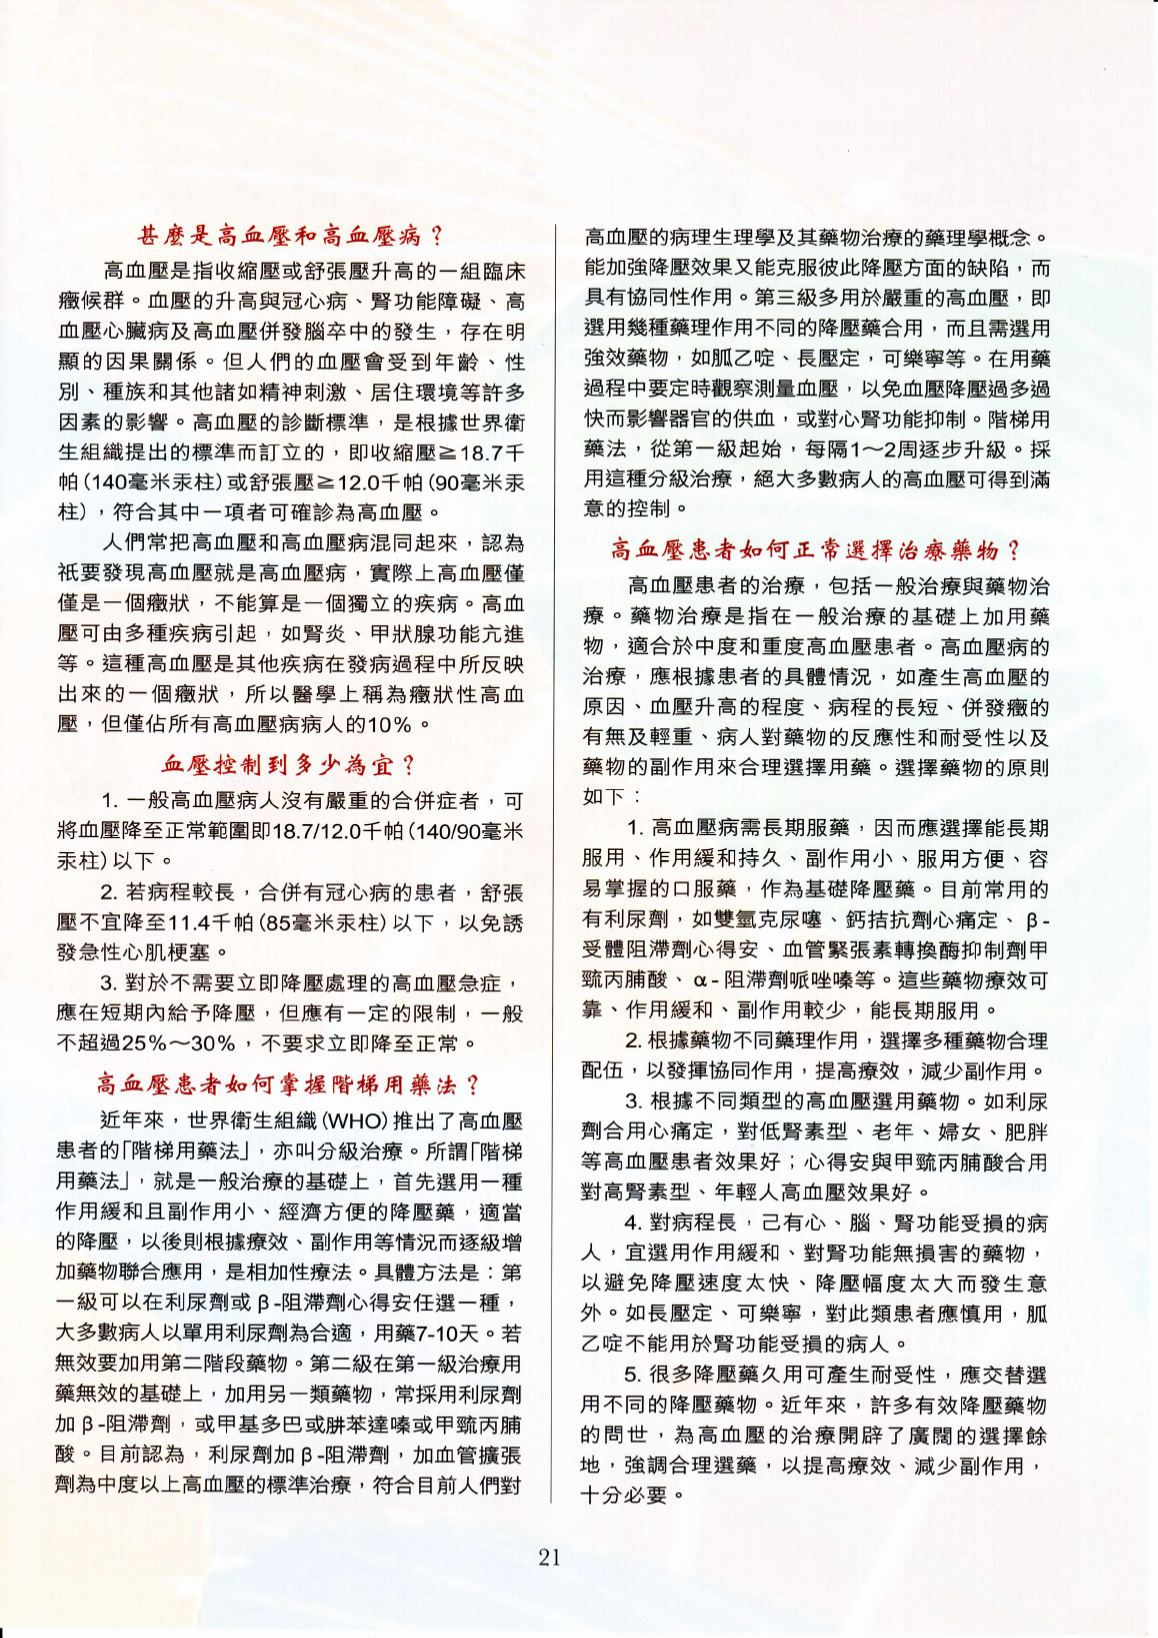 甚麼是高血壓和高血壓病？
高血壓是指收縮壓或舒張壓升高的一組臨床
癥候群。血壓的升高與冠心病、腎功能障礙、高
血壓心臟病及高血壓併發腦卒中的發生，存在明
顯的因果關係。但人們的血壓會受到年齡、性
別、種族和其他諸如精神刺激、居住環境等許多
因素的影響。高血壓的診斷標準，是根據世界衛
生組織提出的標準而訂立的，即收縮壓≧18.7千
帕(140毫米汞柱)或舒張壓≧12.0千帕(90毫米汞
柱)，符合其中一項者可確診為高血壓。
人們常把高血壓和高血壓病混同起來，認為
祇要發現高血壓就是高血壓病，實際上高血壓僅
僅是一個癥狀，不能算是一個獨立的疾病。高血
壓可由多種疾病引起，如腎炎、甲狀腺功能亢進
等。這種高血壓是其他疾病在發病過程中所反映
出來的一個癥狀，所以醫學上稱為癥狀性高血
壓，但僅佔所有高血壓病病人的10%。
血壓控制到多少為宜？
1. 一般高血壓病人沒有嚴重的合併症者，可
將血壓降至正常範圍即18.7/12.0千帕(140/90毫米
汞柱)以下。
2. 若病程較長，合併有冠心病的患者，舒張
壓不宜降至11.4千帕(85毫米汞柱)以下，以免誘
發急性心肌梗塞。
3. 對於不需要立即降壓處理的高血壓急症，
應在短期內給予降壓，但應有一定的限制，一般
不超過25%～30%，不要求立即降至正常。
高血壓患者如何掌握階梯用藥法？
近年來，世界衛生組織(WHO)推出了高血壓
患者的「階梯用藥法」，亦叫分級治療。所謂「階梯
用藥法」，就是一般治療的基礎上，首先選用一種
作用緩和且副作用小、經濟方便的降壓藥，適當
的降壓，以後則根據療效、副作用等情況而逐級增
加藥物聯合應用，是相加性療法。具體方法是：第
一級可以在利尿劑或β-阻滯劑心得安任選一種，
大多數病人以單用利尿劑為合適，用藥7-10天。若
無效要加用第二階段藥物。第二級在第一級治療用
藥無效的基礎上，加用另一類藥物，常採用利尿劑
加β-阻滯劑，或甲基多巴或肼苯達嗪或甲巰丙脯
酸。目前認為，利尿劑加β-阻滯劑，加血管擴張
劑為中度以上高血壓的標準治療，符合目前人們對
高血壓的病理生理學及其藥物治療的藥理學概念。
能加強降壓效果又能克服彼此降壓方面的缺陷，而
具有協同性作用。第三級多用於嚴重的高血壓，即
選用幾種藥理作用不同的降壓藥合用，而且需選用
強效藥物，如胍乙啶、長壓定，可樂寧等。在用藥
過程中要定時觀察測量血壓，以免血壓降壓過多過
快而影響器官的供血，或對心腎功能抑制。階梯用
藥法，從第一級起始，每隔1～2周逐步升級。採
用這種分級治療，絕大多數病人的高血壓可得到滿
意的控制。
高血壓患者如何正常選擇治療藥物？
高血壓患者的治療，包括一般治療與藥物治
療。藥物治療是指在一般治療的基礎上加用藥
物，適合於中度和重度高血壓患者。高血壓病的
治療，應根據患者的具體情況，如產生高血壓的
原因、血壓升高的程度、病程的長短、併發癥的
有無及輕重、病人對藥物的反應性和耐受性以及
藥物的副作用來合理選擇用藥。選擇藥物的原則
如下：
1. 高血壓病需長期服藥，因而應選擇能長期
服用、作用緩和持久、副作用小、服用方便、容
易掌握的口服藥，作為基礎降壓藥。目前常用的
有利尿劑，如雙氫克尿噻、鈣拮抗劑心痛定、β-
受體阻滯劑心得安、血管緊張素轉換酶抑制劑甲
巰丙脯酸、α-阻滯劑哌唑嗪等。這些藥物療效可
靠、作用緩和、副作用較少，能長期服用。
2. 根據藥物不同藥理作用，選擇多種藥物合理
配伍，以發揮協同作用，提高療效，減少副作用。
3. 根據不同類型的高血壓選用藥物。如利尿
劑合用心痛定，對低腎素型、老年、婦女、肥胖
等高血壓患者效果好；心得安與甲巰丙脯酸合用
對高腎素型、年輕人高血壓效果好。
4. 對病程長，己有心、腦、腎功能受損的病
人，宜選用作用緩和、對腎功能無損害的藥物，
以避免降壓速度太快、降壓幅度太大而發生意
外。如長壓定、可樂寧，對此類患者應慎用，胍
乙啶不能用於腎功能受損的病人。
5. 很多降壓藥久用可產生耐受性，應交替選
用不同的降壓藥物。近年來，許多有效降壓藥物
的問世，為高血壓的治療開辟了廣闊的選擇餘
地，強調合理選藥，以提高療效、減少副作用，
十分必要。
21